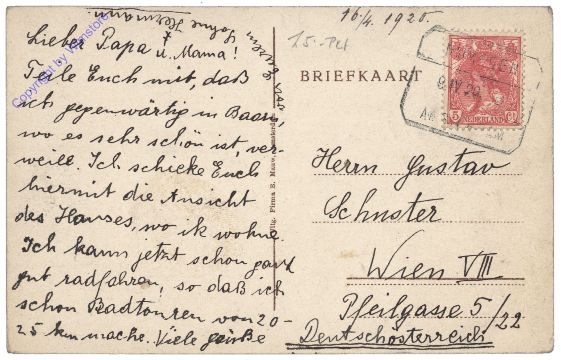 16/4. 1920.
Lieber Papa
u. Mama!
Teile Euch mit, daß
ich gegenwärtig in Baarn,
wo es sehr schön ist, ver-
weile. Ich schicke Euch
hiermit die Ansicht
des Hauses, wo ik wohne.
Ich kann jetzt schon ganz
gut radfahren, so daß ich
schon Radtouren von 20-
25 km mache. Viele Grüße
Sohne Hermann
BRIEFKAART
5 Ct
NEDERLAND
Herrn Gustav
Schuster
Wien VIII
Pfeilgasse 5/22
Deutschösterreich
Copyright by